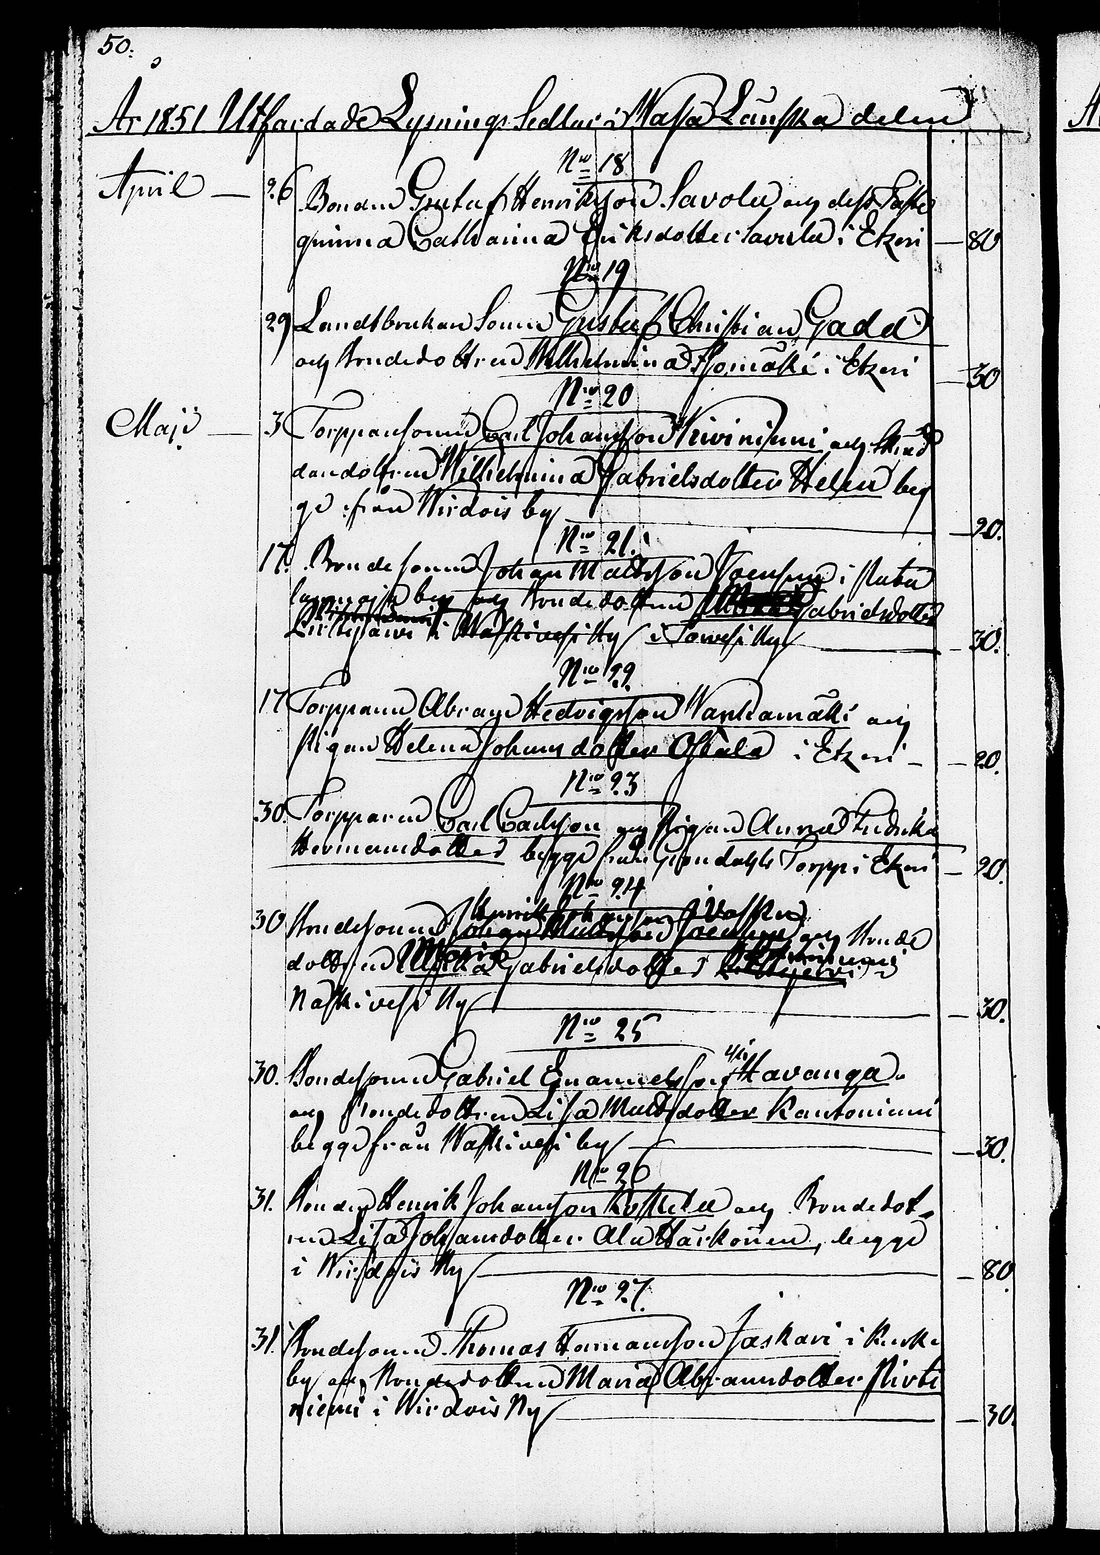 50.
År 1851 Utfärdade Lysnings Sedlar i Wasa Länska delen
No 18
April — 26 Bonden Gustaf Henriksson Savola och dess Fäste
quinna Catharina Eriksdotter Savola i Etzeri — 80
No 19
29 Landtbrukare Sonen Gustaf Christian Gadd
och Bondedottren Wilhelmina i Etzeri — 30
No 20
Maji — 3 Torpparsonen Carl Johansson Kiviniemi och
dottren Wilhelmina Gabrielsdotter Helen beg
ge från Wirdois by — 20.
No 21.
17. Bondesonen Johan Mattsson i
by och Bondedottren Gabrielsdotter
i Waskivesi By — 30.
No 22.
17 Torpparen Abram Hedvigsson Wankamäki och
Pigan Helena Johansdotter Ostala i Etzeri — 20.
No 23
30. Torpparen Carl Carlsson och Pigan Anna Fredrika
Hermansdotter begge från Torpp i Etzeri — 20.
No 24
30 Bondesonen Henrik Johansson och Bonde
dottren Maria Gabrielsdotter i
Waskivesi By — 30.
No 25
30. Bondesonen Gabriel Emanuelsson Havanga
och Bondedottren Lisa Mattsdotter Kantoniemi
begge från Waskivesi by — 30.
No 26
31. Bonden Henrik Johansson och Bondedot-
ren Lisa Johansdotter Ala Härkönen, begge
i Wirdois By — 80.
No 27.
31. Bondesonen Thomas Hermansson Jaskari i
by och Bondedottren Maria Abramsdotter Pirti
niemi i Wirdois By — 30.